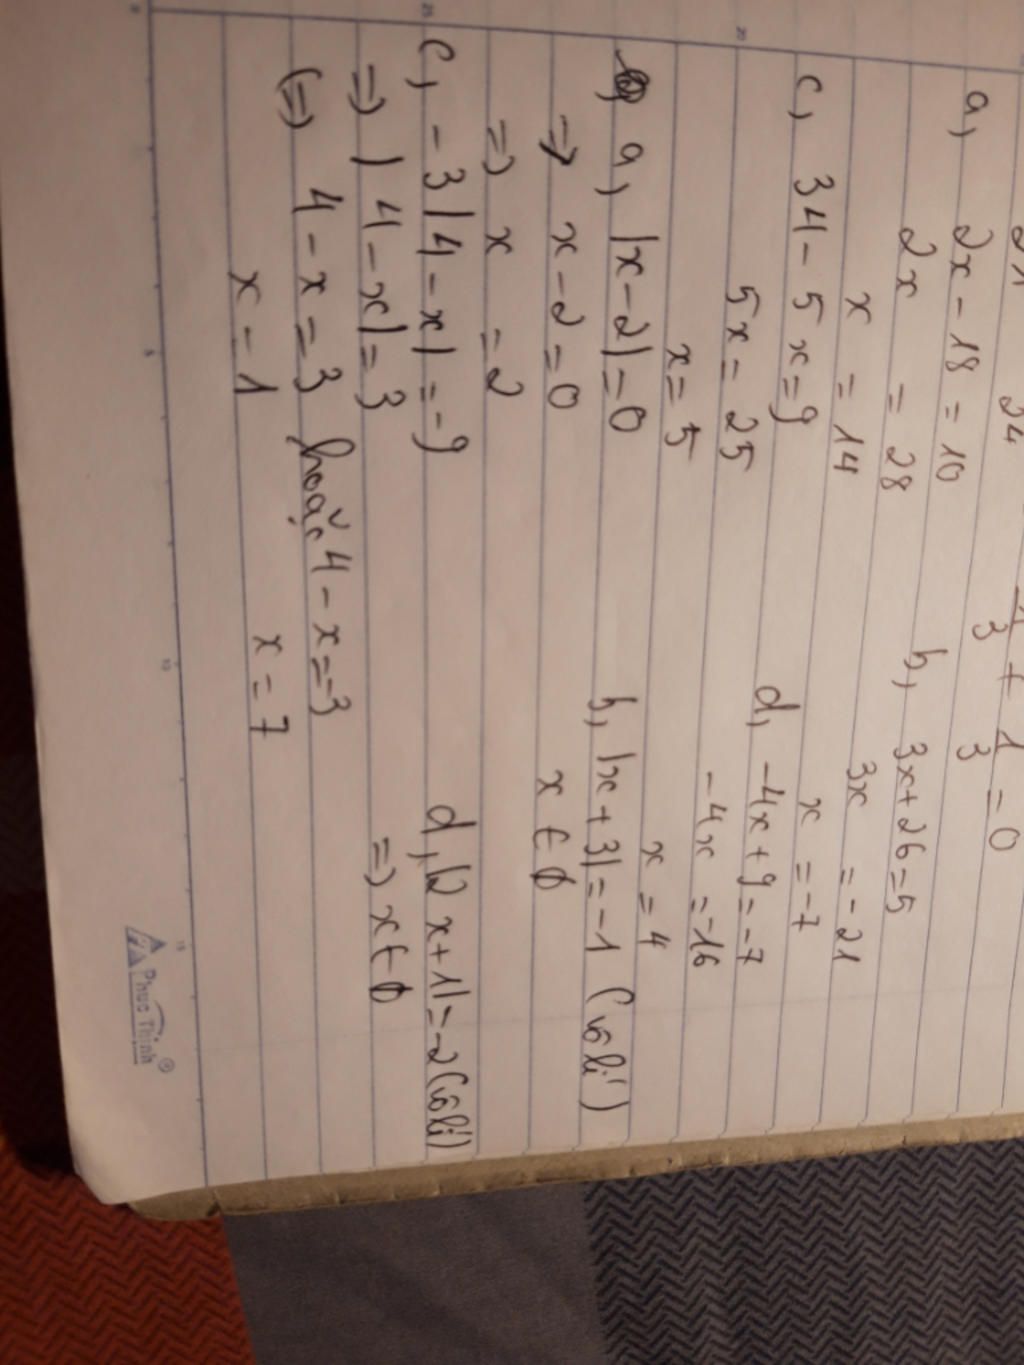 24
1/3 + 1/3 = 0
a, 2x - 18 = 10
b, 3x + 26 = 5
2x = 28
3x = -21
x = 14
x = -7
c, 34 - 5x = 9
d, -4x + 9 = -7
5x = 25
-4x = -16
x = 5
x = 4
a, |x - 2| = 0
b, |x + 3| = -1 (vô lí)
=> x - 2 = 0
x ∈ ϕ
=> x = 2
c, -3|4 - x| = -9
d, |2x + 1| = -2 (vô lí)
=> |4 - x| = 3
=> x ∈ ϕ
(=) 4 - x = 3 hoặc 4 - x = -3
x - 1
x = 7
Phuc Thinh®